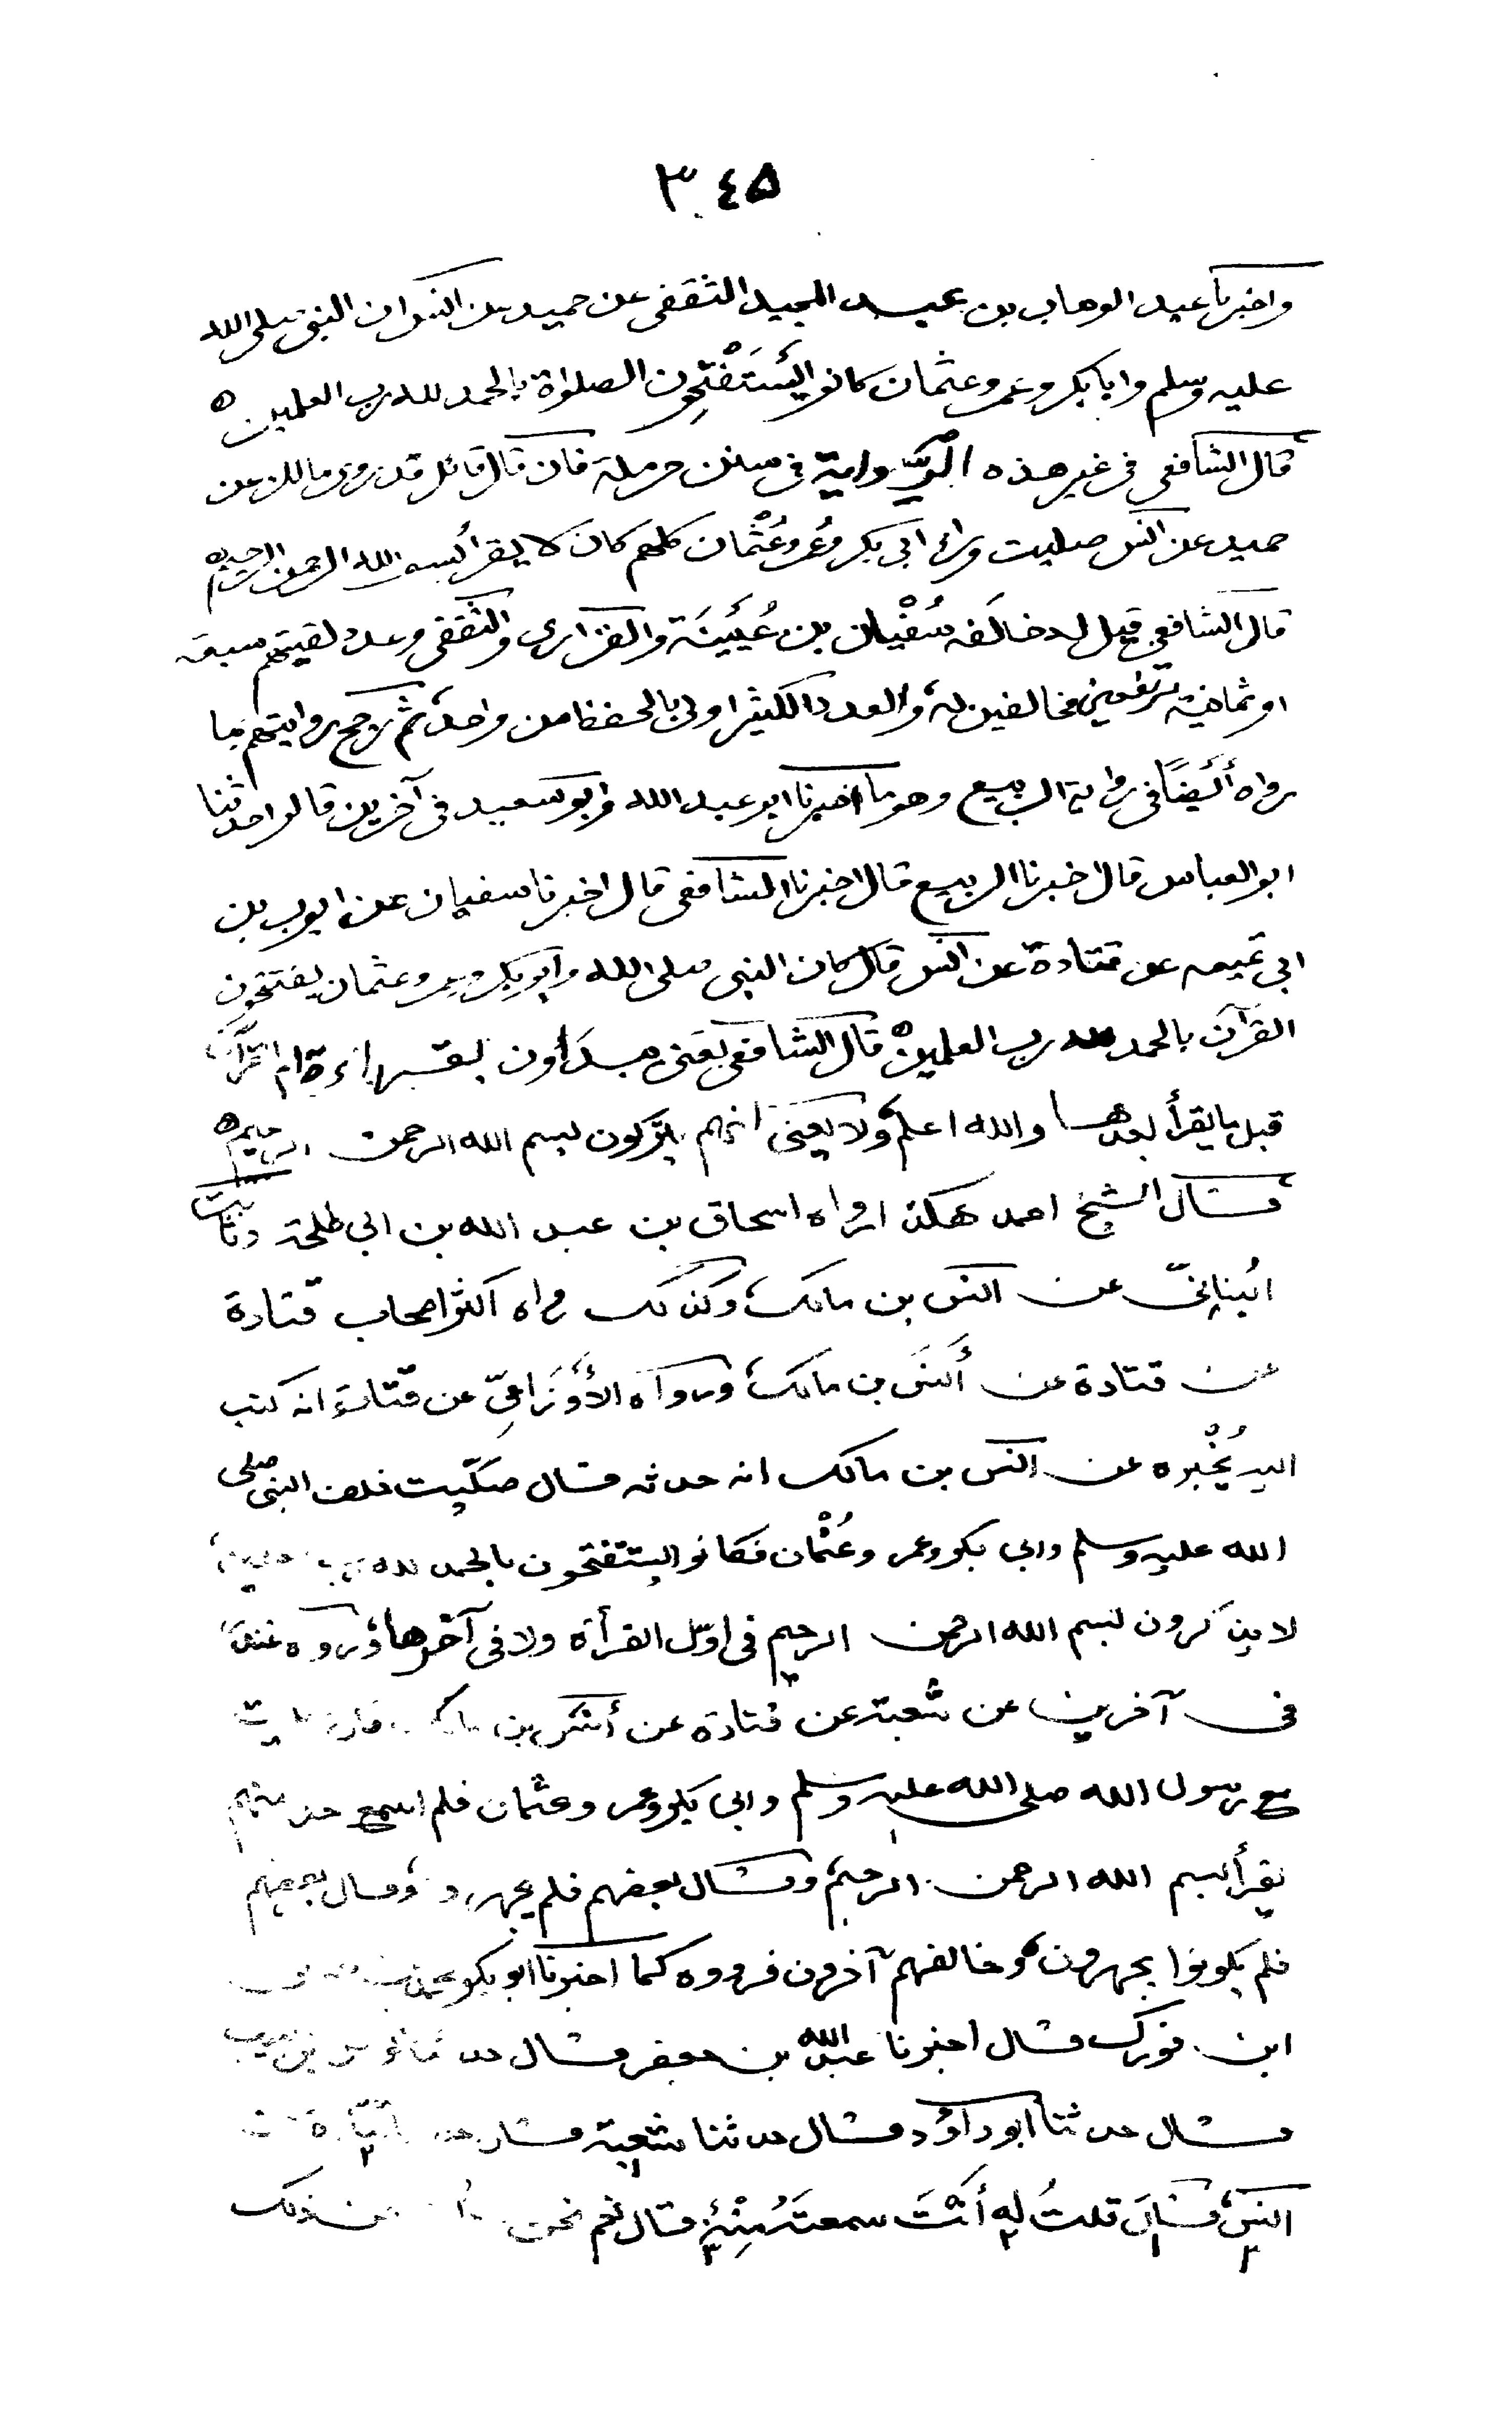 ٣٤٥
واخبرنا عبد الوهاب بن عبد المجيد الثقفى عن حميد عن انس ان النبى صلى الله
عليه وسلم وابا بكر وعمر وعثمان كانوا يَسْتَفْتِحُون الصلواة بالحمد لله رب العلمين ه
قال الشافعى فى غير هذه الرِّواية فى سنن حرملة فان قال قائل قد روى مالك عن
حميد عن انس صليت وراء ابى بكر وعُمر وعُثْمان كلهم كان لا يقرأ بسم الله الرحمن الرحيم ه
قال الشافعى قيل له خالفه سُفْيان بن عُيَيْنَة والفزارى والثقفى وعدد لقيتهم سبعة
او ثمانية متفقين مخالفين له، والعدد الكثير اولى بالحفظ من واحد، ثم رجح روايتهم بما
رواه أَيْضًا فى رواية الربيع وهو ما اخبرنا ابو عبد الله وابو سعيد فى آخرين قالوا حدثنا
ابو العباس قال اخبرنا الربيع قال اخبرنا الشافعى قال اخبرنا سفيان عن ايوب بن
ابى تميمه عن قتادة عن انس قال كان النبى صلى الله وابو بكر وعمر وعثمان يفتتحون
القرآن بالحمد لله رب العلمين ه قال الشافعى يعنى يبدَأون بقراءة ام القرآن
قبل ما يقرأ بعدها والله اعلم، ولا يعنى انهم يتركون بسم الله الرحمن الرحيم ه
قال الشيخ احمد هكذا رواه اسحاق بن عبد الله بن ابى طلحة وثابت
البُنانِىّ عن انس بن مالك، وكذلك رواه اكثر اصحاب قتادة
عن قتادة عن أَنَس بن مالك، ورواه الأَوْزَاعِىّ عن قتادة انه كتب
اليه يُخْبِره عن انس بن مالك انه حدثه قال صلّيت خلف النبى صلى
الله عليه وسلم وابى بكر وعمر وعُثْمان فكانوا يستفتحون بالحمد لله رب
لا يذكرون بسم الله الرحمن الرحيم فى اوّل القرأة ولا فى آخرها، ورواه غندر
فى آخرين عن شُعبة عن قتادة عن أنس بن مالك قال صليت
مع رسول الله صلى الله عليه وسلم وابى بكر وعمر وعثمان فلم اسمع احد منهم
يقرأ بسم الله الرحمن الرحيم، وقال بعضهم فلم يجهروا، وقال بعضهم
فلم يكونوا يجهرون، وخالفهم آخرون فرووه كما اخبرنا ابو بكر محمد بن
ابن فورك قال اخبرنا عبد الله بن جعفر قال حدثنا يونس بن حبيب
قال حدثنا ابو داؤد قال حدثنا شعبة قال قتادة
انس، قال قلتُ له أَنْتَ سمعتَه مِنْهُ قال نعم نحن عن ذلك